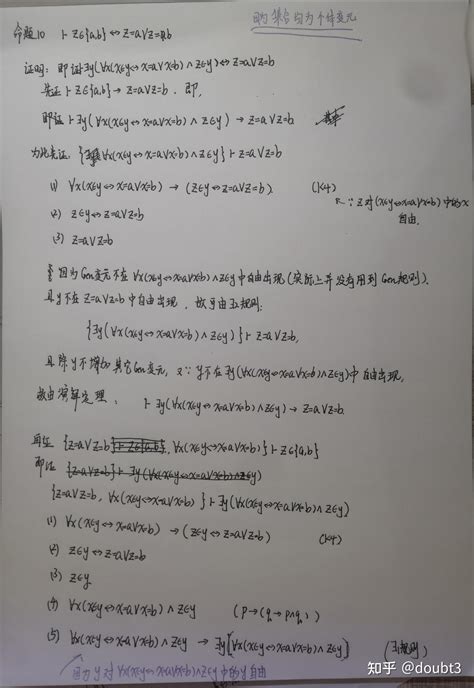 因为集合均为个体变元
命题10 ⊢ z∈{a,b} ↔ z=a∨z=b
证明: 即证∃y(∀x(x∈y↔x=a∨x=b)∧z∈y)↔z=a∨z=b
先证⊢z∈{a,b}→z=a∨z=b, 即,
即证⊢∃y(∀x(x∈y↔x=a∨x=b)∧z∈y)→z=a∨z=b
为此先证: {∀x(x∈y↔x=a∨x=b)∧z∈y}⊢z=a∨z=b
(1) ∀x(x∈y↔x=a∨x=b)→(z∈y↔z=a∨z=b) (K4)
∵z对(x∈y↔x=a∨x=b)中的x
自由.
(2) z∈y↔z=a∨z=b
(3) z=a∨z=b
因为Gen变元不在∀x(x∈y↔x=a∨x=b)∧z∈y中自由出现(实际上并没有用到Gen规则).
且y不在z=a∨z=b中自由出现, 故由∃规则:
{∃y(∀x(x∈y↔x=a∨x=b)∧z∈y)}⊢z=a∨z=b,
且除y不增加其它Gen变元, 又∵y不在∃y(∀x(x∈y↔x=a∨x=b)∧z∈y)中自由出现,
故由演绎定理, ⊢∃y(∀x(x∈y↔x=a∨x=b)∧z∈y)→z=a∨z=b
再证 {z=a∨z=b, ∀x(x∈y↔x=a∨x=b)}⊢z∈{a,b}
即证
{z=a∨z=b, ∀x(x∈y↔x=a∨x=b)}⊢∃y(∀x(x∈y↔x=a∨x=b)∧z∈y)
(1) ∀x(x∈y↔x=a∨x=b)→(z∈y↔z=a∨z=b) (K4)
(2) z∈y↔z=a∨z=b
(3) z∈y
(4) ∀x(x∈y↔x=a∨x=b)∧z∈y (p→(q→p∧q))
(5) ∀x(x∈y↔x=a∨x=b)∧z∈y→∃y[∀x(x∈y↔x=a∨x=b)∧z∈y] (∃规则)
因为y对∀x(x∈y↔x=a∨x=b)∧z∈y中的y自由
知乎 @doubt3